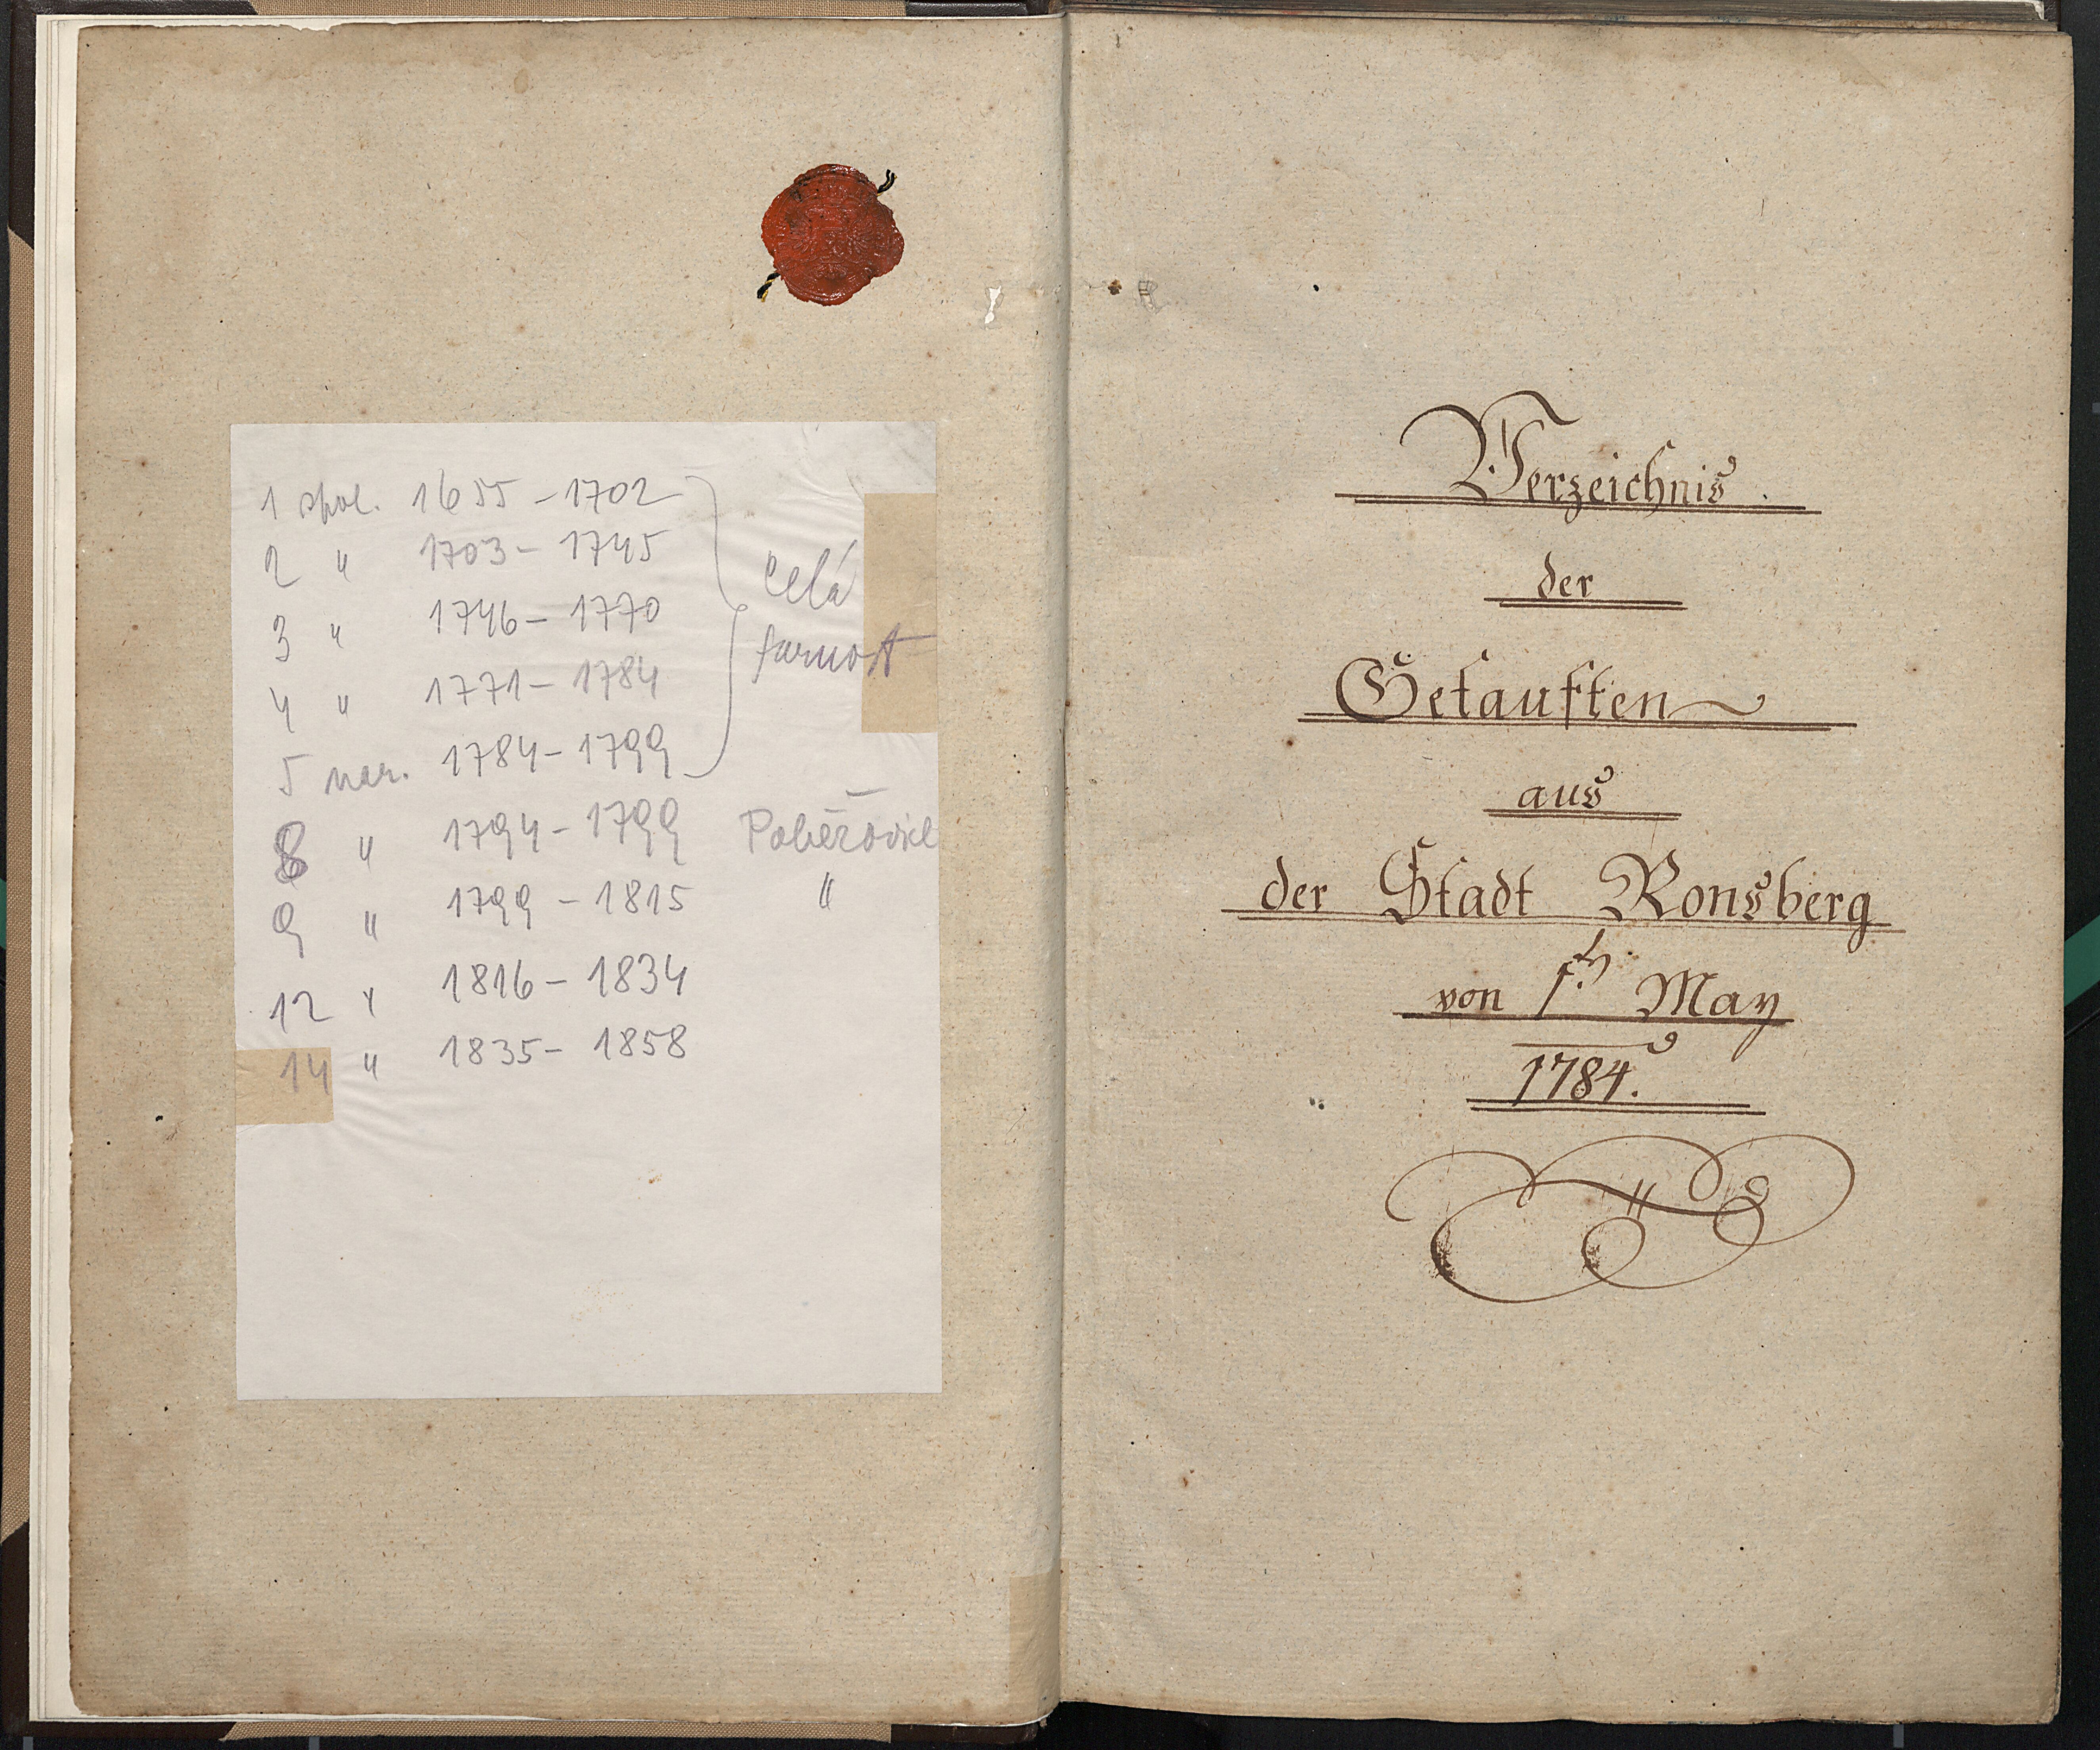 1 spol. 1655 - 1702
2 " 1703 - 1745
3 " 1746 - 1770
4 " 1771 - 1784
5 nar. 1784 - 1799
celá
farnost
8 " 1794 - 1799 Poběžovice
9 " 1799 - 1815 "
12 " 1816 - 1834
14 " 1835 - 1858
Verzeichnis.
der
Getauften
aus
der Stadt Ronsberg
von 1. May
1784.